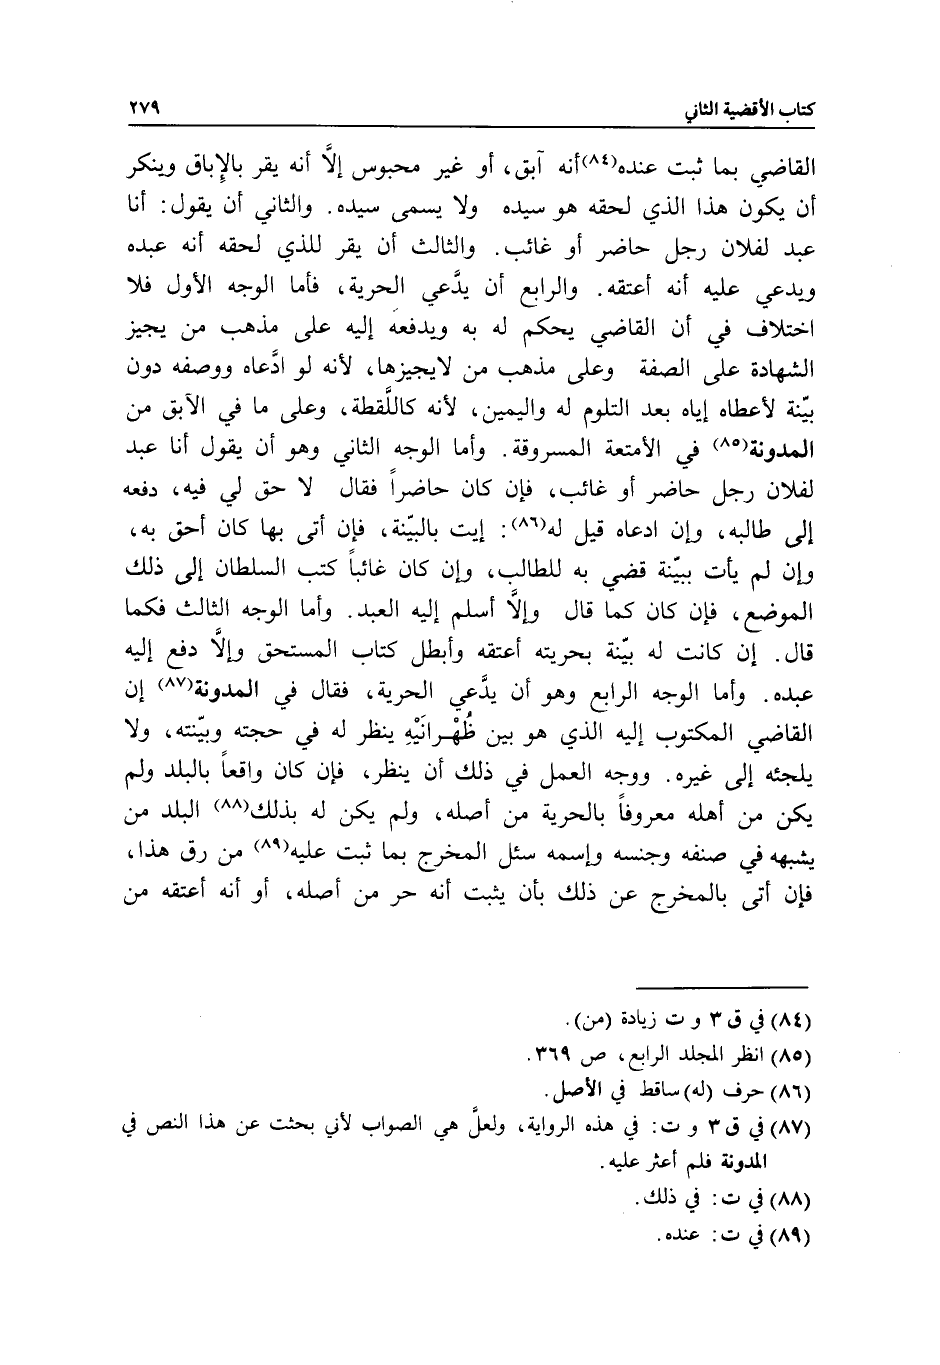 كتاب الأقضية الثاني ٢٧٩
القاضي بما ثبت عنده(٨٤) أنه آبق، أو غير محبوس إلاَّ أنه يقر بالإِباق وينكر
أن يكون هذا الذي لحقه هو سيده ولا يسمى سيده. والثاني أن يقول: أنا
عبد لفلان رجل حاضر أو غائب. والثالث أن يقر للذي لحقه أنه عبده
ويدعي عليه أنه أعتقه. والرابع أن يدَّعي الحرية، فأما الوجه الأول فلا
اختلاف في أن القاضي يحكم له به ويدفعَه إليه على مذهب من يجيز
الشهادة على الصفة وعلى مذهب من لايجيزها، لأنه لو ادَّعاه ووصفه دون
بيّنة لأعطاه إياه بعد التلوم له واليمين، لأنه كاللَّقطة، وعلى ما في الآبق من
المدونة(٨٥) في الأمتعة المسروقة. وأما الوجه الثاني وهو أن يقول أنا عبد
لفلان رجل حاضر أو غائب، فإن كان حاضراً فقال لا حق لي فيه، دفعه
إلى طالبه، وإن ادعاه قيل له(٨٦): إيت بالبيّنة، فإن أتى بها كان أحق به،
وإن لم يأت ببيّنة قضي به للطالب، وإن كان غائباً كتب السلطان إلى ذلك
الموضع، فإن كان كما قال وإلَّا أسلم إليه العبد. وأما الوجه الثالث فكما
قال. إن كانت له بيّنة بحريته أعتقه وأبطل كتاب المستحق وإلاَّ دفع إليه
عبده. وأما الوجه الرابع وهو أن يدَّعي الحرية، فقال في المدونة(٨٧) إن
القاضي المكتوب إليه الذي هو بين ظُهْرانَيْهِ ينظر له في حجته وبيّنته، ولا
يلجئه إلى غيره. ووجه العمل في ذلك أن ينظر، فإن كان واقعاً بالبلد ولم
يكن من أهله معروفاً بالحرية من أصله، ولم يكن له بذلك(٨٨) البلد من
يشبهه في صنفه وجنسه وإسمه سئل المخرج بما ثبت عليه(٨٩) من رق هذا،
فإن أتى بالمخرج عن ذلك بأن يثبت أنه حر من أصله، أو أنه أعتقه من
(٨٤) في ق ٣ و ت زيادة (من).
(٨٥) انظر المجلد الرابع، ص ٣٦٩.
(٨٦) حرف (له) ساقط في الأصل.
(٨٧) في ق ٣ و ت: في هذه الرواية، ولعلَّ هي الصواب لأني بحثت عن هذا النص في
المدونة فلم أعثر عليه.
(٨٨) في ت: في ذلك.
(٨٩) في ت: عنده.